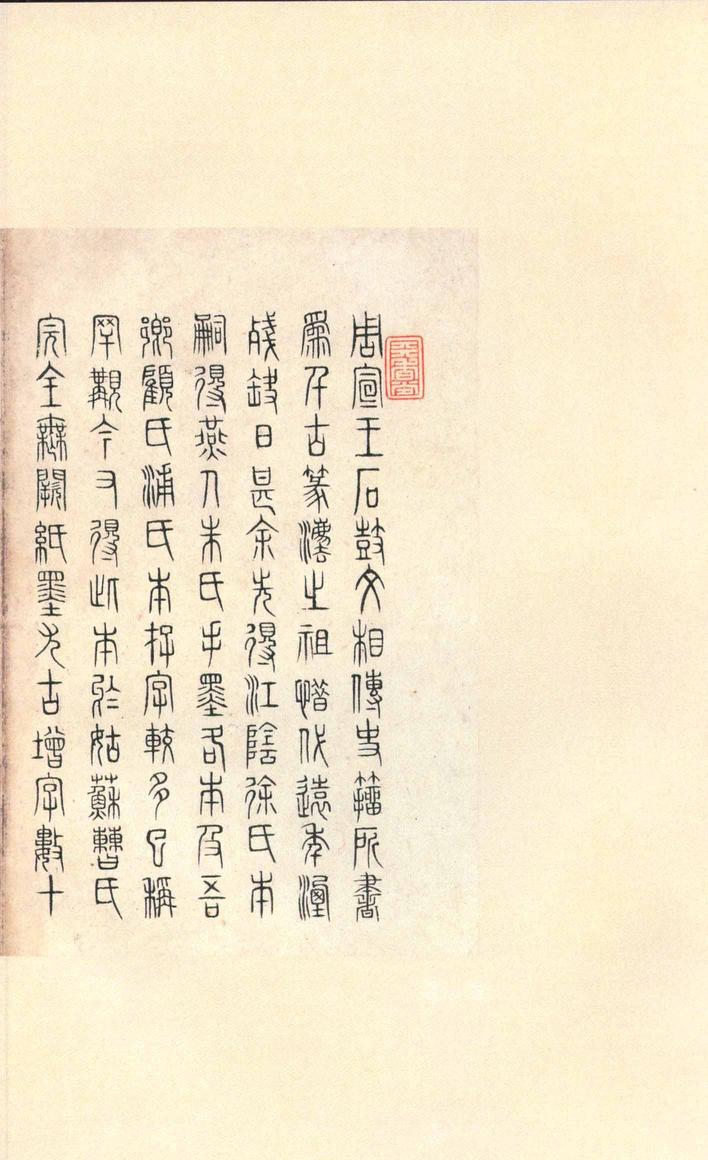 周宣王石鼓文相傳史籀所書
為千古篆灋之祖惜代遠年湮
殘缺日甚余先得江陰徐氏本
嗣得燕人朱氏手墨各本及吾
鄉顧氏浦氏本存字較多已稱
罕覯今又得此本於姑蘇曹氏
完全無闕紙墨尤古增字數十